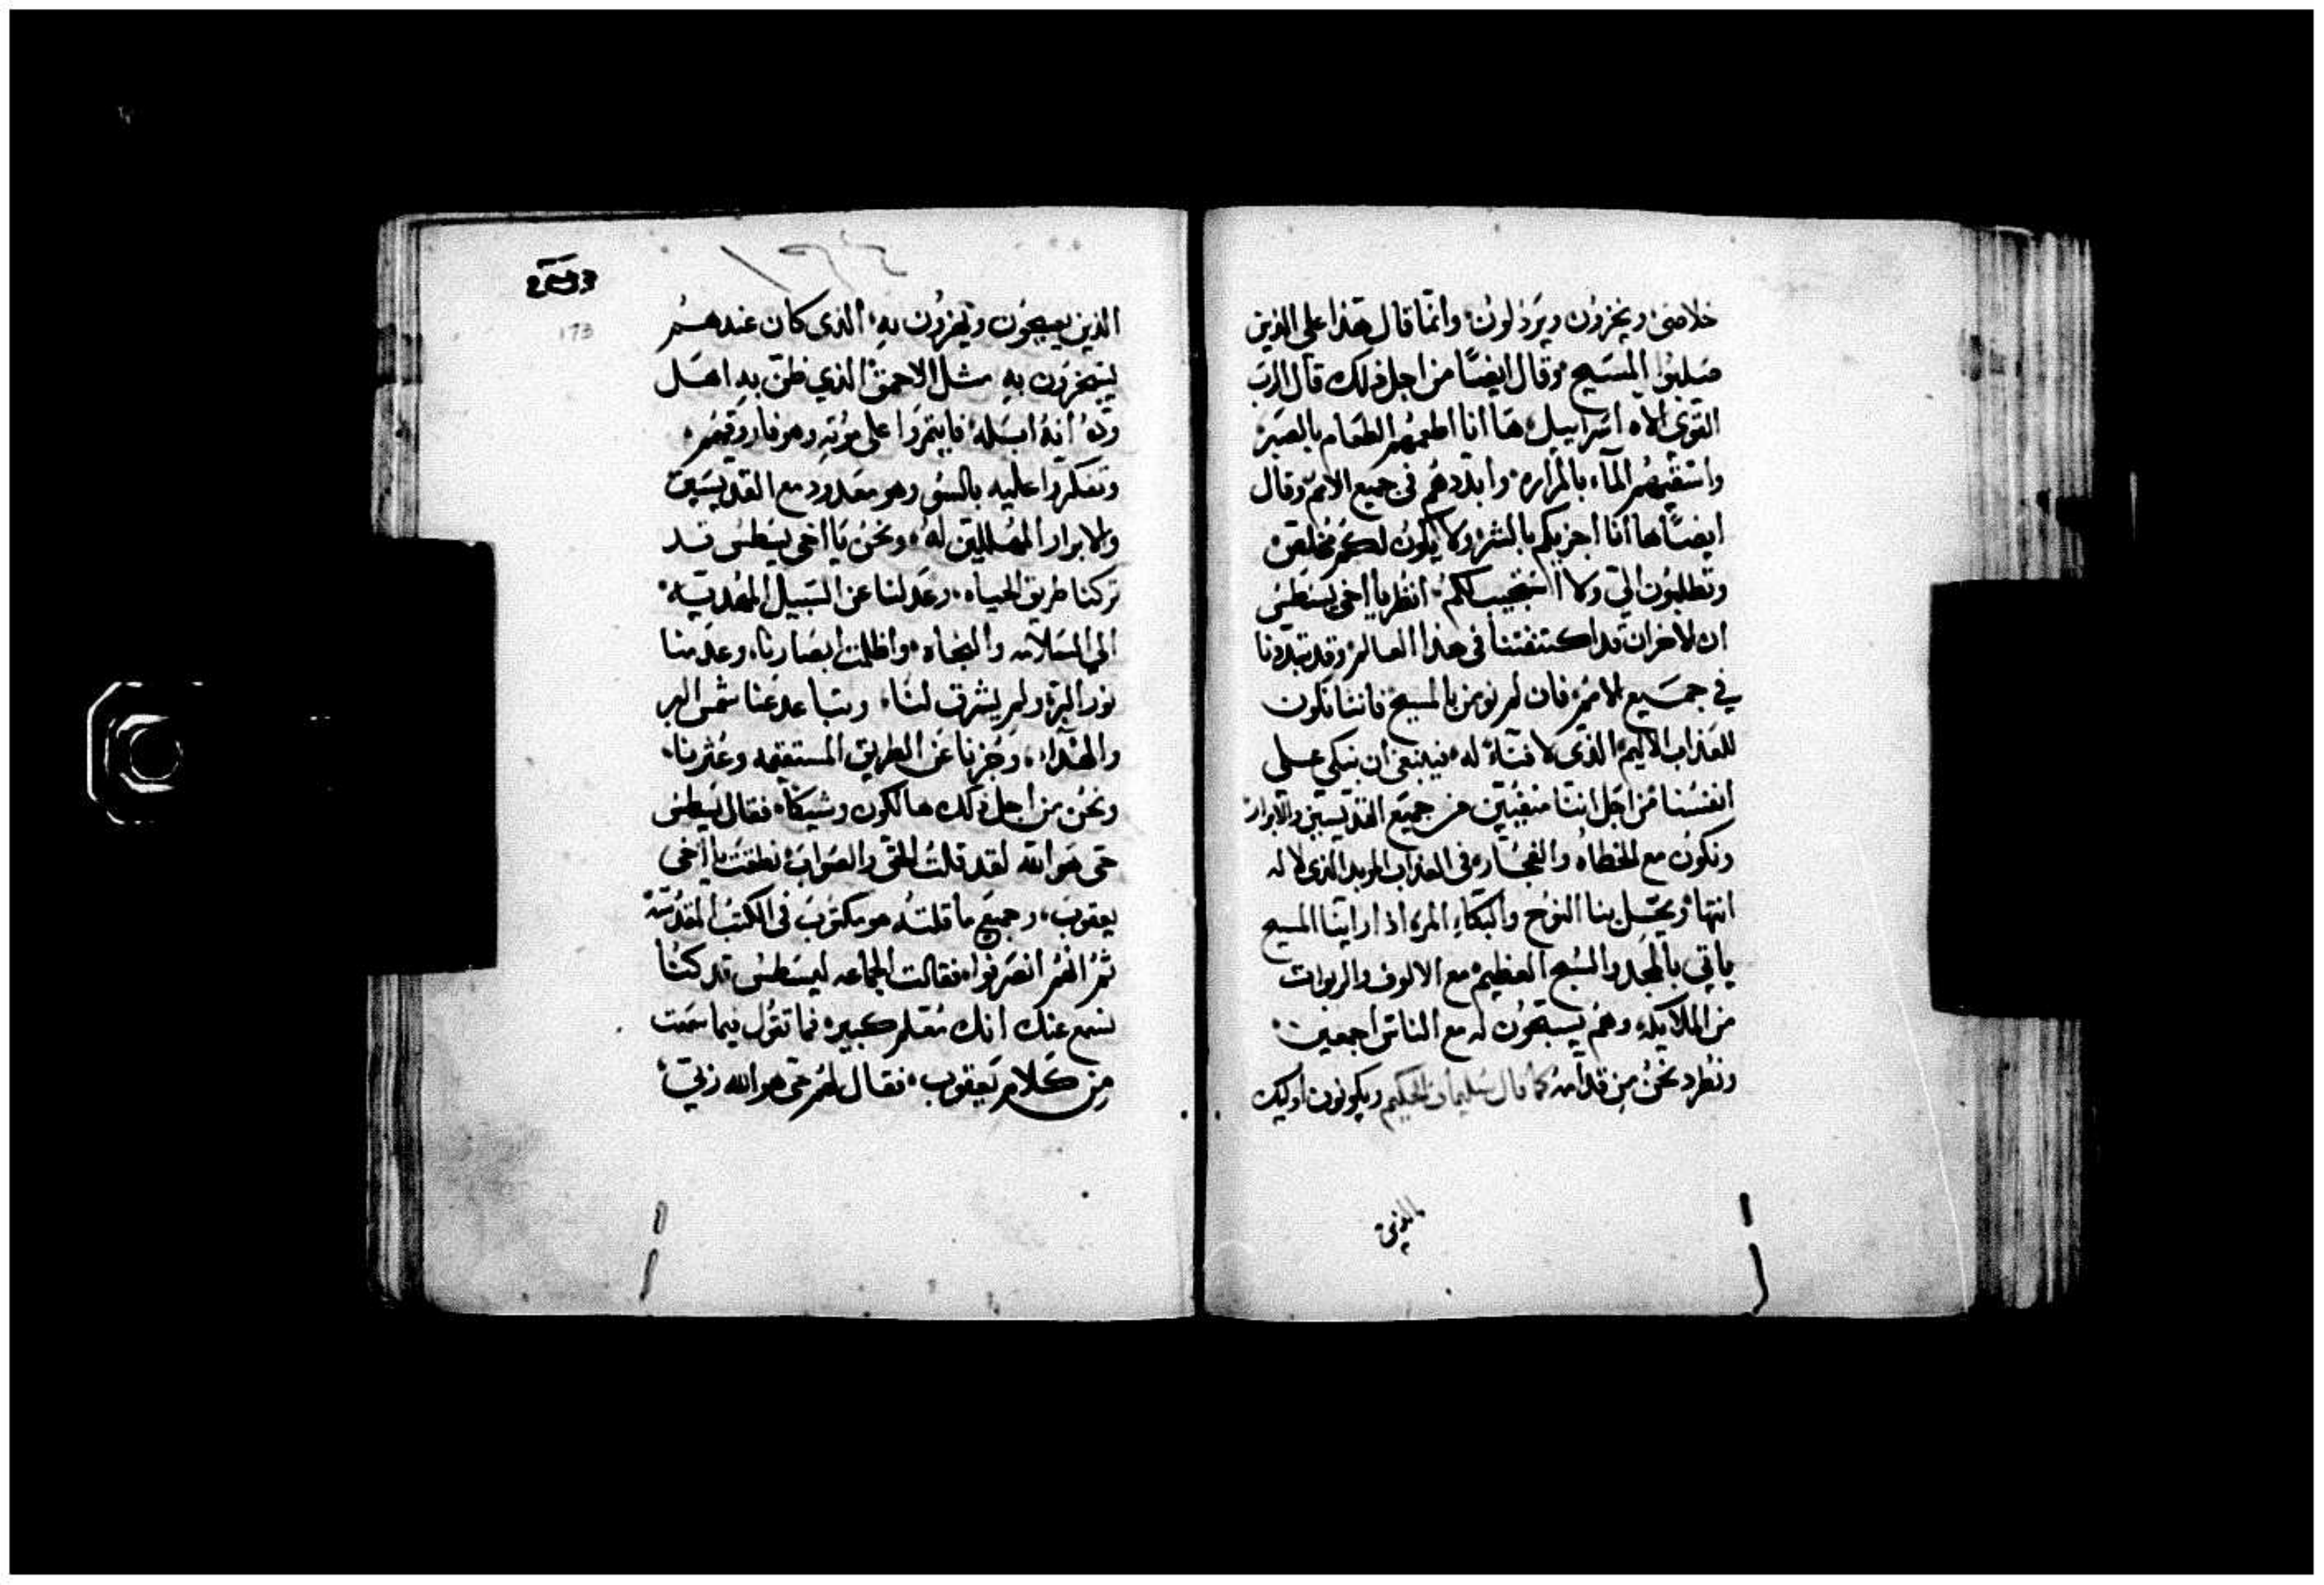 خلاصى ويخزون ويرذلون وانما قال هذا على الذين
صلبوا المسيح وقال ايضًا من اجل ذلك قال الرب
القوي الاه اسراييل هاانا اطعمهم الطعام بالصبر
واسقيهم المآء بالمراره وابددهم فى جميع الامم وقال
ايضًا ها انا اجزيكم بالشر ولا يكون لكم مخلص
وتطلبون الي ولا استجيب لكم انظر يااخى يسطس
ان الاحزان قد اكتنفتنا فى هذا العالم وقد تبددنا
في جميع الامم فان لم نومن بالمسيح فاننا نكون
للعذاب الاليم الذى لا فنآء له فينبغى ان نبكي على
انفسنا من اجل اننا منفيين من جميع القديسين والابرار
ونكون مع الخطاه والفجار فى العذاب الموبد الذى لا له
انتهآ ويحل بنا النوح والبكاء المر اذا راينا المسيح
ياتي بالمجد والسبح العظيم مع الالوف والربوات
من الملايكه وهم يسبحون له مع الناس اجمعين
ونطرد نحن من قدامه كما قال سليمان الحكيم ويكونون اوليك
الذين
173
الذين يعيجون ويهزون به الذى كان عندهم
يسخرون به مثل الاحمق الذي ظن به اهل
وده انه ابله فايتمروا على موته وهو فاروقهم
وتفكروا عليه بالسو وهو معدود مع القديسين
والابرار المهللين له ونحن يااخى يسطس قد
تركنا طريق الحياه وعدلنا عن السبيل المهديه
الي السلامه والنجاه واظلمت ابصارنا وعدمنا
نور البر ولم يشرق لنا وتباعد عنا شمس البر
والهدا وجزنا عن الطريق المستقيمه وعثرنا
ونحن من اجل ذلك هالكون وشيكا فقال يسطس
حى هو الله لقد قلت الحق والصواب نطقت يااخى
يعقوب وجميع ما قلته هو مكتوب فى الكتب المقدسه
ثم انهم انصرفوا فقالت الجماعه ليسطس قد كنا
نسمع عنك انك معلم كبير فما تقول فيما سمعت
من كلام يعقوب فقال لهم حى هو الله ربي